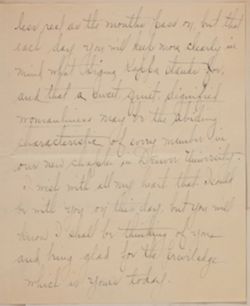 less real as the months pass on, but that
each day you will keep more clearly in
mind what Sigma Kappa stands for,
and that a sweet, quiet, dignified
womanliness may be the abiding
characteristic of every member in
our new chapter in Denver University.
I wish with all my heart that I could
be with you on this day, but you will
know I shall be thinking of you
and being glad for the privilege
which is yours today.